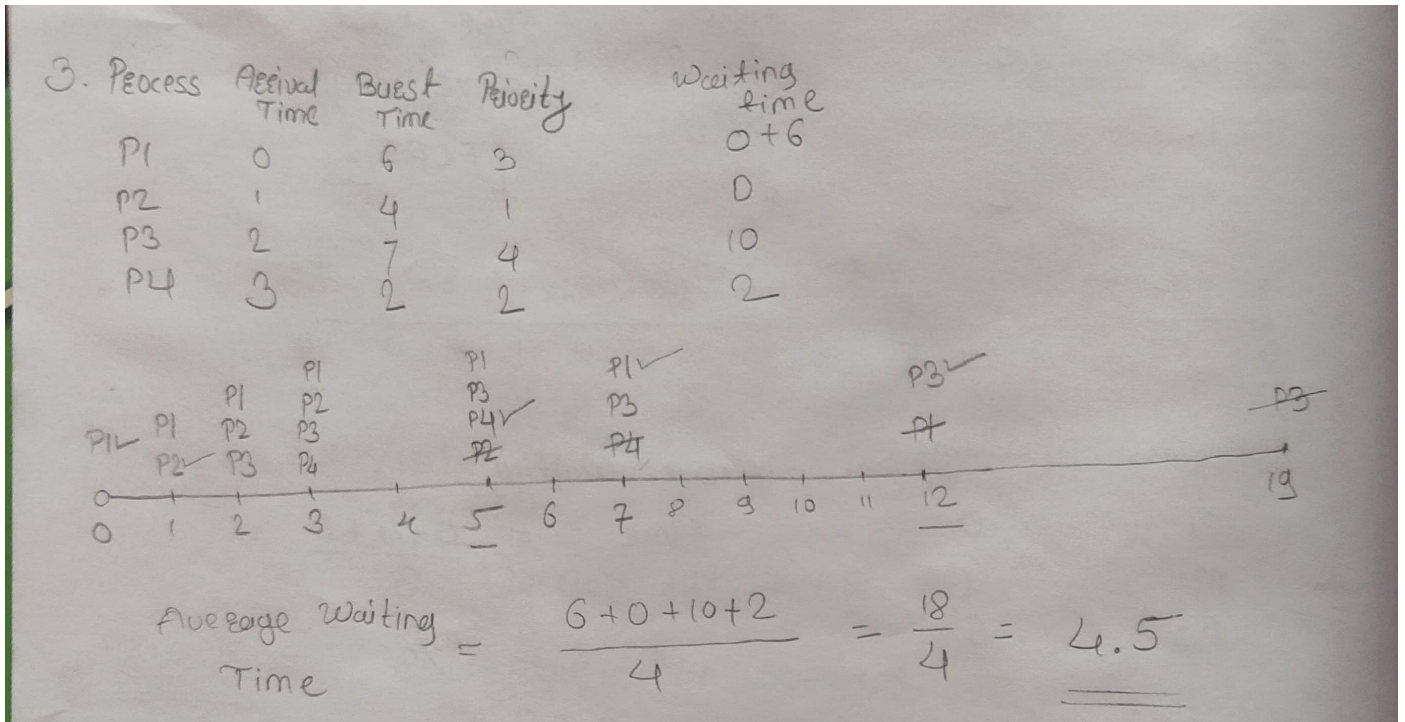 3. Process Arrival Time Burst Time Priority Waiting time
P1 0 6 3 0+6
P2 1 4 1 0
P3 2 7 4 10
P4 3 2 2 2
P1 P1 P1✓ P3✓
P1 P2 P3 P3 P3
P1✓ P1 P2 P3 P4✓ P4 P1
P2✓ P3 P4 P2
0 1 2 3 4 5 6 7 8 9 10 11 12 19
Average Waiting Time = 6+0+10+2 / 4 = 18 / 4 = 4.5